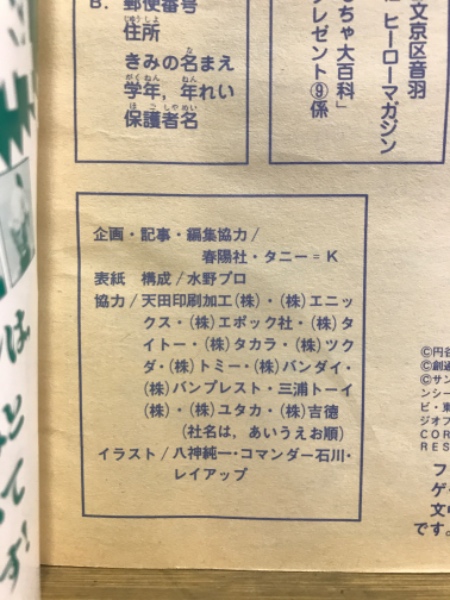 B. 郵便番号
住所
きみの名まえ
学年，年れい
保護者名
文京区音羽
ヒーローマガジン
ちゃ大百科」
プレゼント⑨係
企画・記事・編集協力/
春陽社・タニー＝K
表紙　構成/水野プロ
協力/天田印刷加工(株)・(株)エニッ
クス・(株)エポック社・(株)タ
イトー・(株)タカラ・(株)ツク
ダ・(株)トミー・(株)バンダイ・
(株)バンプレスト・三浦トーイ
(株)・(株)ユタカ・(株)吉徳
(社名は，あいうえお順)
イラスト/八神純一・コマンダー石川・
レイアップ
©円谷
©創通
©サン
ンシー
ビ・東
ジオフ
COR
RES
フ
ゲ
文中
です。